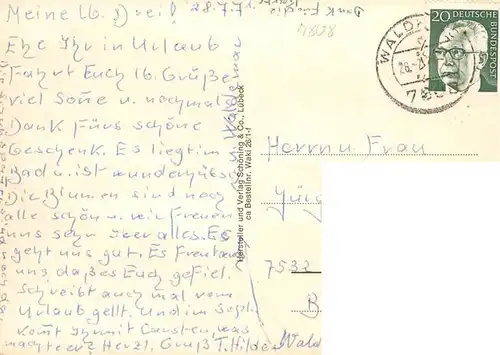 Meine lb. Drei! 28.7.71
Ehe Ihr in Urlaub
Fahrt Euch lb. Grüße
viel Sonne u. nochmal
Dank fürs schöne
Geschenk. Es liegt im
Bad u. ist wunderhübsch
Die Blumen sind noch
alle schön u. wir freuen
uns sehr über alles. Es
geht uns gut. Es Freut
uns daßes Euch gefiel.
Schreibt auch mal vom
Urlaub gellt. Und im Sept.
kommt Ihr mit Carsten, was
macht er? Herzl. Gruß T. Hilde
Waldemar
Dank für die
4808
WALD
28.
78
20
DEUTSCHE
BUNDESPOST
Hersteller und Verlag Schöning & Co., Lübeck
ca Bestellnr. Waki 26/1-f
Herrn u. Frau
Jürg
7532
B
Wald